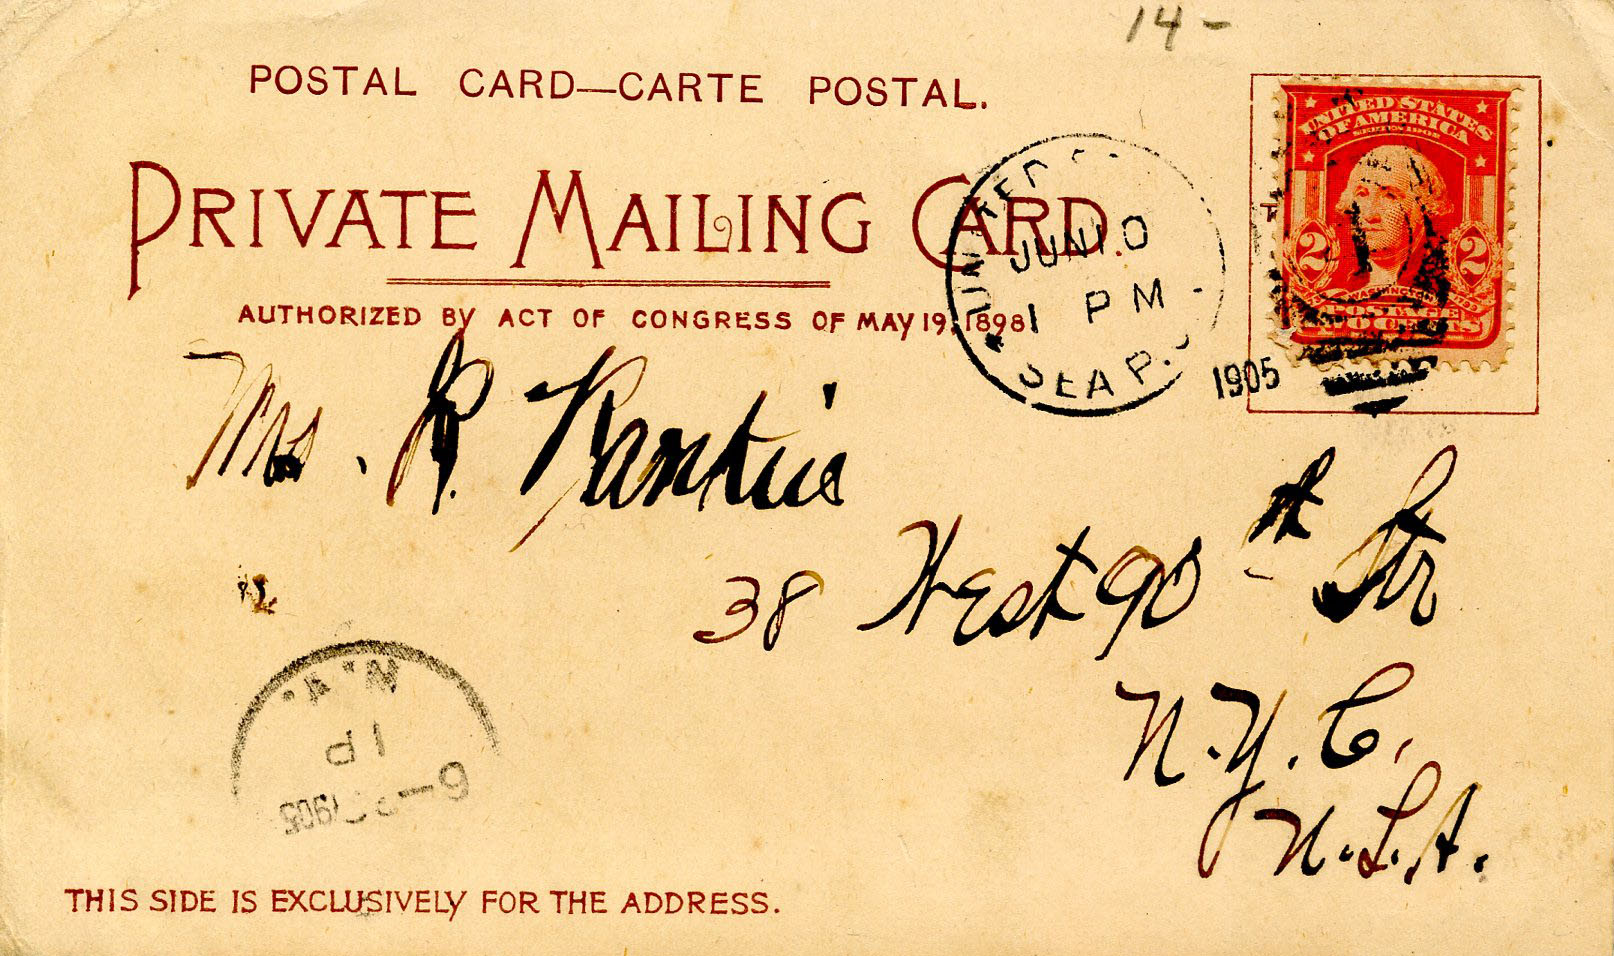 14-
POSTAL CARD—CARTE POSTAL.
UNITED STATES
OF AMERICA
SERIES 1902
2 2
WASHINGTON
TWO CENTS
PRIVATE MAILING CARD.
UNITED
JUN 10
1 PM
SEA P.
1905
AUTHORIZED BY ACT OF CONGRESS OF MAY 19, 1898
Mrs. R. Rankin
38 West 90th Str
N.Y.C.
U.S.A.
N.Y.
1 P
6-
1905
THIS SIDE IS EXCLUSIVELY FOR THE ADDRESS.